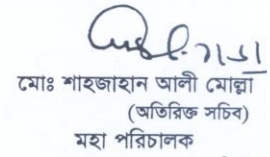 মোঃ শাহজাহান আলী মোল্লা
(অতিরিক্ত সচিব)
মহা পরিচালক